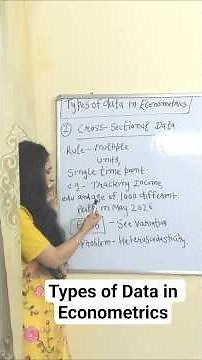 Types of data in Econometrics
① Cross-Sectional Data
Rule- Multiple
units,
Single time point
eg- Tracking Income
and age of 1000 different
in May 2026
- See variation
Problem- Heteroscedasticity
Types of Data in
Econometrics